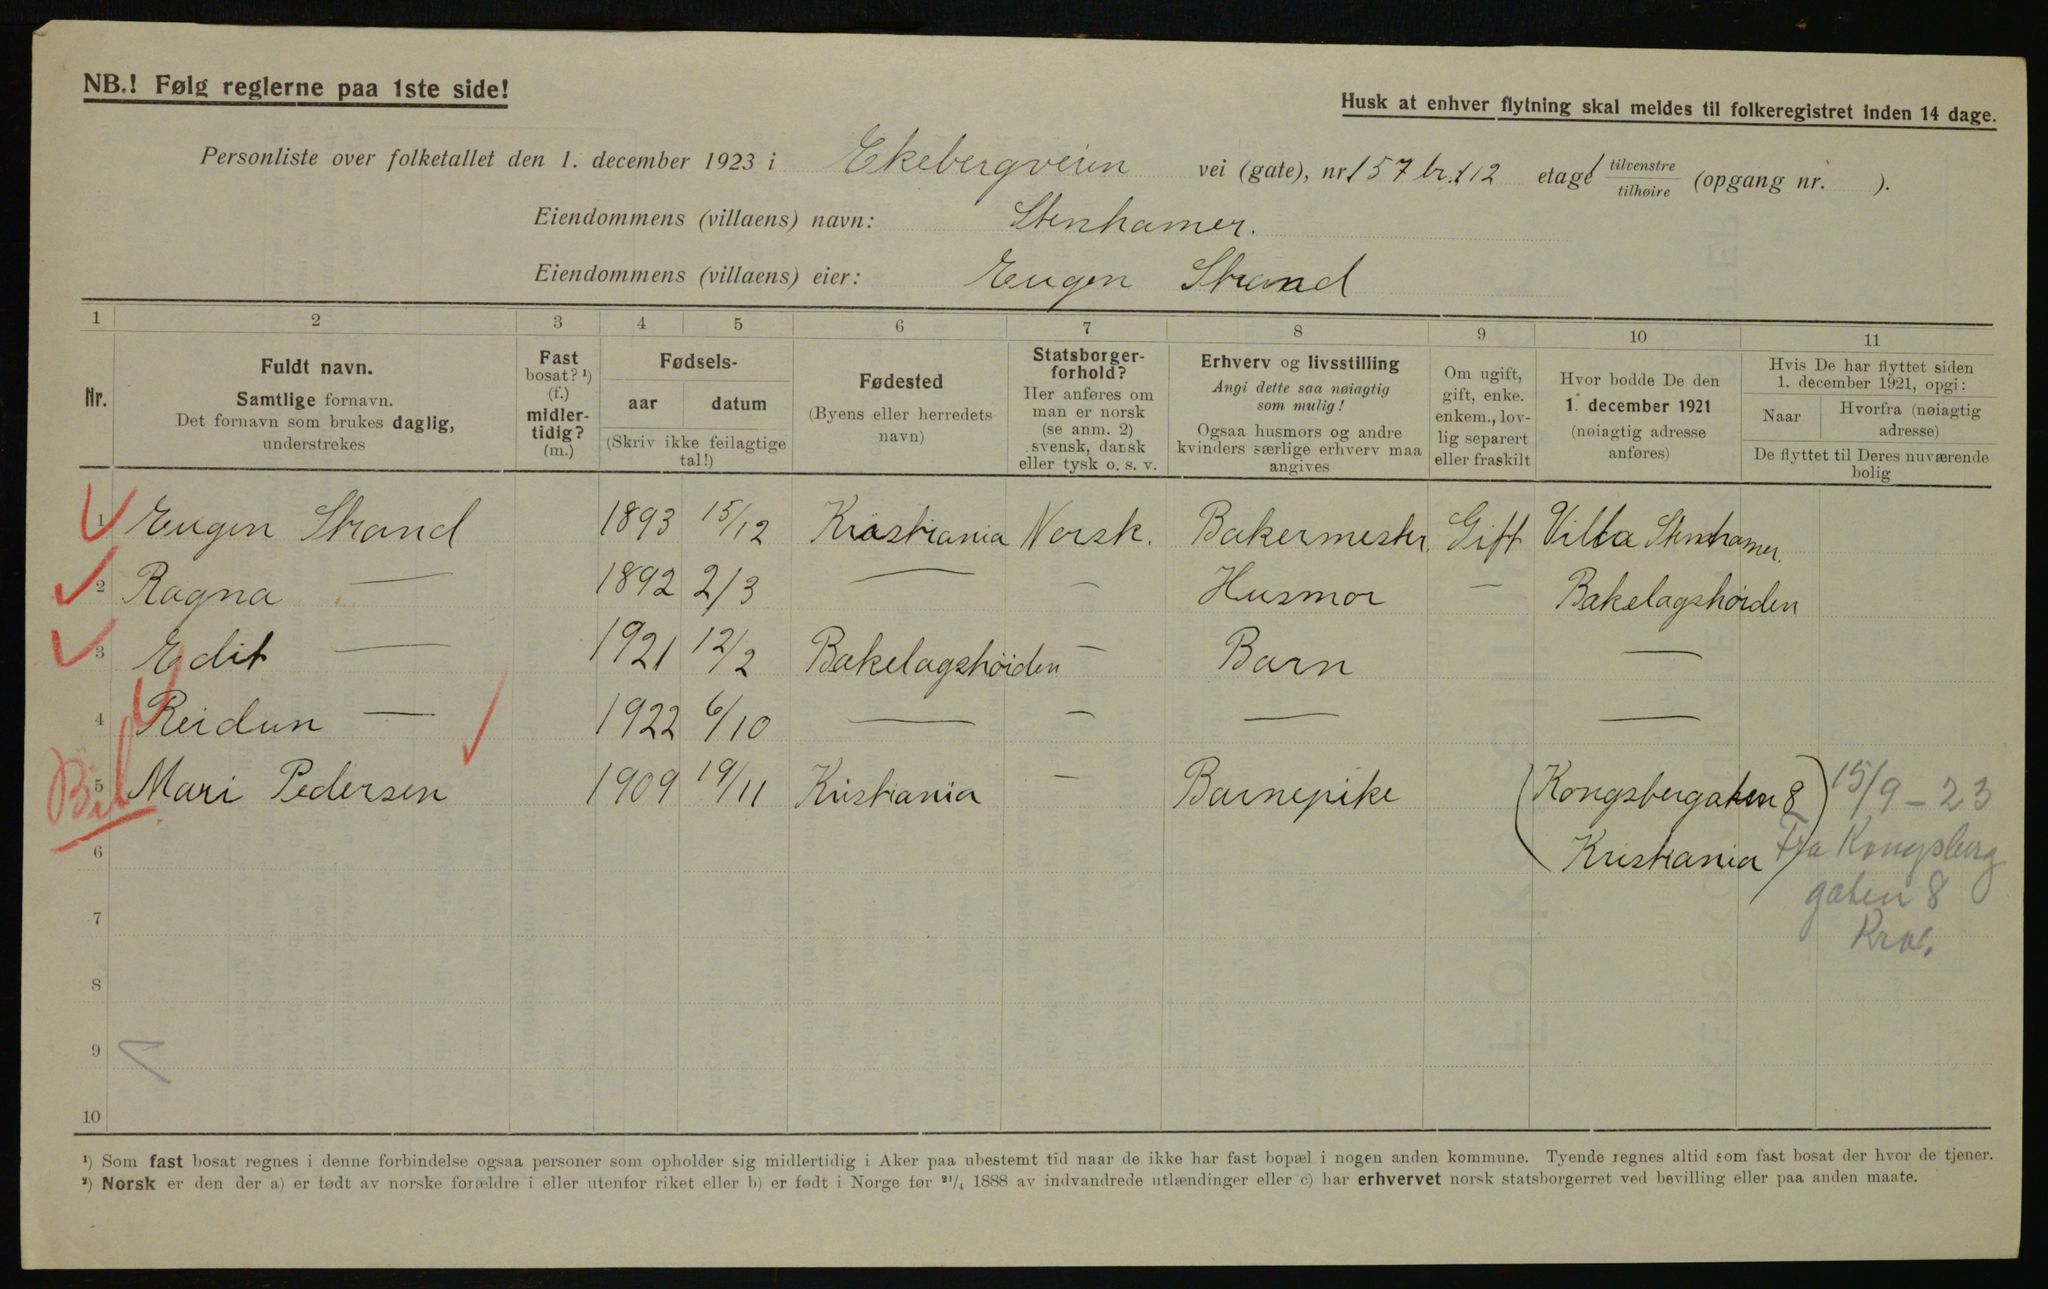 NB.! Følg reglerne paa 1ste side!
Husk at enhver flytning skal meldes til folkeregistret inden 14 dage.
Personliste over folketallet den 1. december 1923 i Ekebergveien vei (gate), nr. 157 br. 112 etage 1 tilvenstre / tilhøire (opgang nr. ).
Eiendommens (villaens) navn: Stenhamer.
Eiendommens (villaens) eier: Eugen Strand
1 2 3 4 5 6 7 8 9 10 11
Nr.
Fuldt navn.
Samtlige fornavn.
Det fornavn som brukes daglig,
understrekes
Fast
bosat? ¹)
(f.)
midler-
tidig?
(m.)
Fødsels-
aar datum
(Skriv ikke feilagtige
tal!)
Fødested
(Byens eller herredets
navn)
Statsborger-
forhold?
Her anføres om
man er norsk
(se anm. 2)
svensk, dansk
eller tysk o. s. v.
Erhverv og livsstilling
Angi dette saa nøiagtig
som mulig!
Ogsaa husmors og andre
kvinders særlige erhverv maa
angives
Om ugift,
gift, enke.
enkem., lov-
lig separert
eller fraskilt
Hvor bodde De den
1. december 1921
(nøiagtig adresse
anføres)
Hvis De har flyttet siden
1. december 1921, opgi:
Naar Hvorfra (nøiagtig
adresse)
De flyttet til Deres nuværende
bolig
1 Eugen Strand 1893 15/12 Kristiania Norsk. Bakermester. Gift Villa Stenhamer.
2 Ragna — 1892 2/3 — - Husmor - Bækelagshöiden
3 Edit — 1921 12/2 Bækelagshöiden - Barn —
4 Reidun — 1922 6/10 — - — —
5 Mari Pedersen 1909 19/11 Kristiania - Barnepike (Kongsbergaten 8 15/9-23
6 Kristiania) Fra Kongsberg
7 gaten 8
Kra.
8
9
10
¹) Som fast bosat regnes i denne forbindelse ogsaa personer som opholder sig midlertidig i Aker paa ubestemt tid naar de ikke har fast bopæl i nogen anden kommune. Tyende regnes altid som fast bosat der hvor de tjener.
²) Norsk er den der a) er født av norske forældre i eller utenfor riket eller b) er født i Norge før ²¹/₄ 1888 av indvandrede utlændinger eller c) har erhvervet norsk statsborgerret ved bevilling eller paa anden maate.